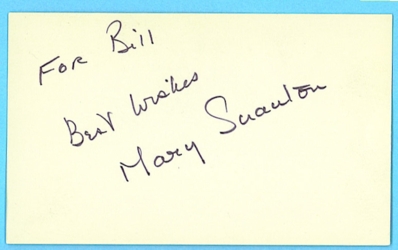 For Bill
Best Wishes
Mary Scranton